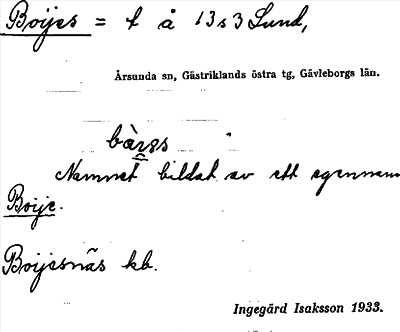 Boijes = t å 13 s 3 Lund,
Årsunda sn, Gästriklands östra tg, Gävleborgs län.
Namnet bildat av ett egennamn
Boije.
Boijesnäs kb.
Ingegärd Isaksson 1933.